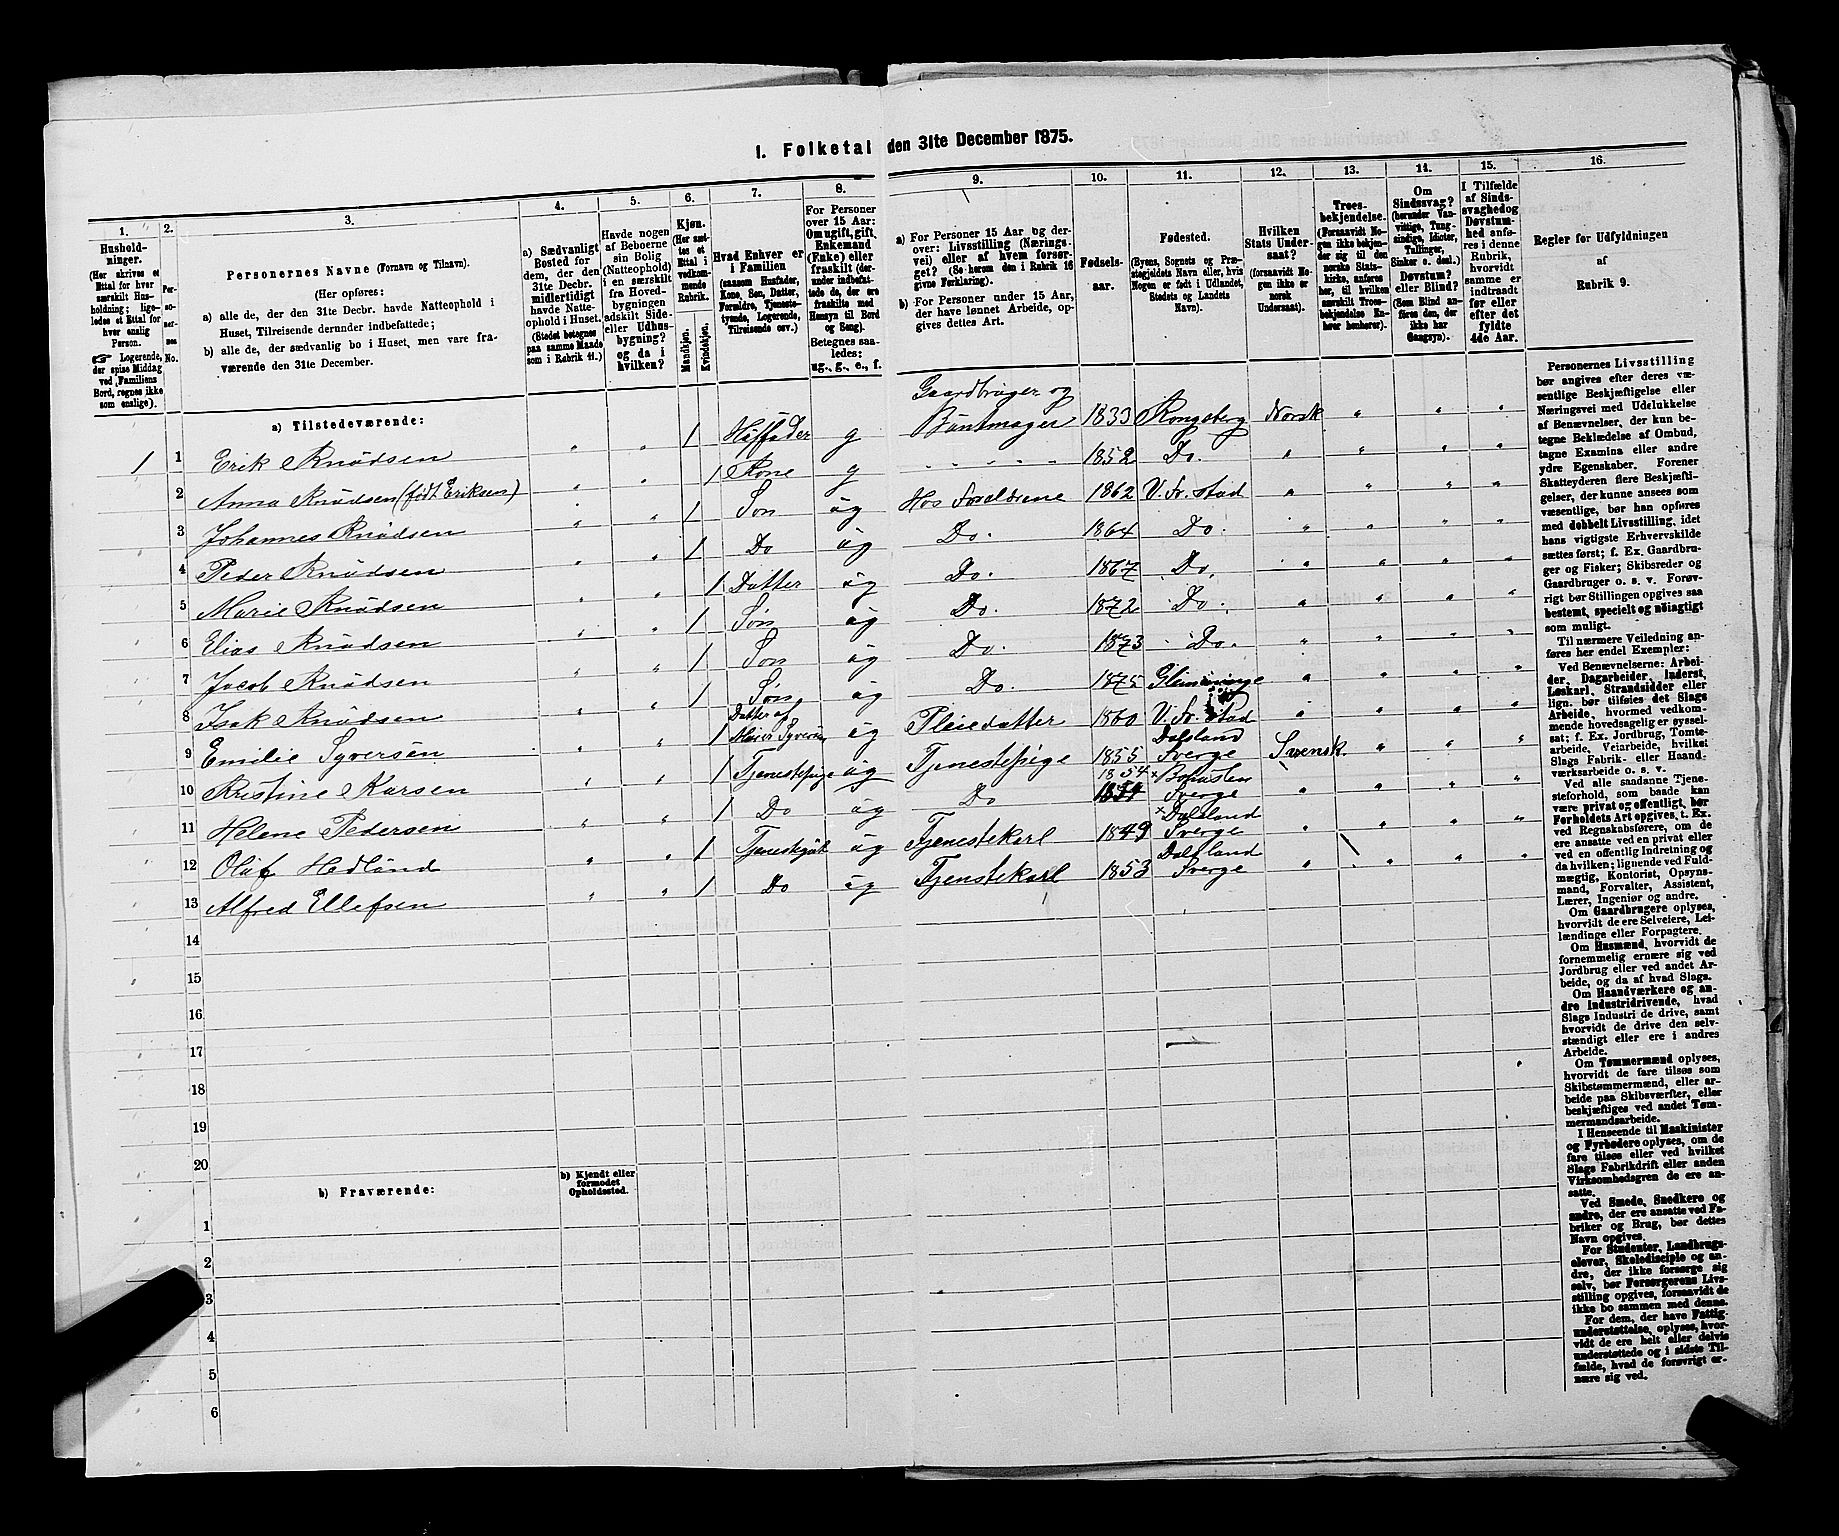 1. Folketal den 31te December 1875.
1. 2. 3. 4. 5. 6. 7. 8. 9. 10. 11. 12. 13. 14. 15. 16.
Hushold-
ninger.
(Her skrives et
Ettal for hver
særskilt Hus-
holdning; lige-
ledes et Ettal for
hver enslig
Person.
☞ Logerende,
der spise Middag
ved Familiens
Bord, regnes ikke
som enslige).
Per-
so-
ner-
nes
No.
Personernes Navne (Fornavn og Tilnavn).
(Her opføres:
a) alle de, der den 31te Decbr. havde Natteophold i
Huset, Tilreisende derunder indbefattede;
b) alle de, der sædvanlig bo i Huset, men vare fra-
værende den 31te December.
a) Sædvanligt
Bosted for
dem, der den
31te Decbr.
midlertidigt
havde Natte-
ophold i Huset.
(Stedet betegnes
paa samme Maade
som i Rubrik 11.)
Havde nogen
af Beboerne
sin Bolig
(Natteophold)
i en særskilt
fra Hoved-
bygningen
adskilt Side-
eller Udhus-
bygning?
og da i
hvilken?
Kjøn.
(Her sæt-
tes et
Ettal i
vedkom-
mende
Rubrik.
Mandkjøn.
Kvindekjøn.
Hvad Enhver er
i Familien
(saasom Husfader,
Kone, Søn, Datter,
Forældre, Tjeneste-
tyende, Logerende,
Tilreisende osv.)
For Personer
over 15 Aar:
Om ugift, gift,
Enkemand
(Enke) eller
fraskilt (der-
under indbefat-
tede de, der ere
fraskilte med
Hensyn til Bord
og Seng).
Betegnes saa-
ledes:
ug., g., e., f.
a) For Personer 15 Aar og der-
over: Livsstilling (Nærings-
vei) eller af hvem forsør-
get? (Se herom den i Rubrik 16
givne Forklaring).
b) For Personer under 15 Aar,
der have lønnet Arbeide, op-
gives dettes Art.
Fødsels-
aar.
Fødested.
(Byens, Sognets og Præ-
stegjeldets Navn eller, hvis
Nogen er født i Udlandet,
Stedets og Landets
Navn).
Hvilken
Stats Under-
saat?
(forsaavidt No-
gen ikke er
norsk
Undersaat).
Troes-
bekjendelse.
(Forsaavidt No-
gen ikke bekjen-
der sig til den
norske Stats-
kirke, anføres
her, til hvilken
særskilt Troes-
bekjendelse En-
hver henhører).
Om
Sindssvag?
(herunder Van-
vittige, Tung-
sindige, Idioter,
Tullinger,
Sinker o. desl.)
Døvstum?
eller Blind?
(Som Blind an-
føres den, der
ikke har
Gangsyn).
I Tilfælde
af Sinds-
svaghed og
Døvstum-
hed anfø-
res i denne
Rubrik,
hvorvidt
samme er
indtraadt
før eller
efter det
fyldte
4de Aar.
Regler for Udfyldningen
af
Rubrik 9.
a) Tilstedeværende:
1 1 Erik Knudsen 1 Husfader g Gaardbruger og Buntmager 1833 Kongsberg Norsk
2 Anna Knudsen (født Eriksen) 1 Kone g 1852 Do.
3 Johannes Knudsen 1 Søn ug Hos Forældrene 1862 V. Fr. stad
4 Peder Knudsen 1 Do ug Do. 1864 Do.
5 Marie Knudsen 1 Datter ug Do. 1867 Do.
6 Elias Knudsen 1 Søn ug Do. 1872 Do.
7 Jacob Knudsen 1 Søn ug Do. 1873 Do.
8 Isak Knudsen 1 Søn ug Do. 1875 Glemminge
9 Emilie Syversen 1 Datter af Syversen ug Pleiedatter 1860 V. Fr. stad
10 Kristine Karsen 1 Tjenestepige ug Tjenestepige 1855 Dalsland Sverge Svensk
11 Helene Pedersen 1 Do ug Do 1854 Sverge
12 Oluf Hedlund 1 ug Tjenestekarl 1849 Dalsland Sverge
13 Alfred Ellefsen 1 Do ug Tjenstekarl 1853 Dalsland Sverge
14
15
16
17
18
19
20
b) Fraværende:
b) Kjendt eller
formodet
Opholdssted.
1
2
3
4
5
6
Personernes Livsstilling
bør angives efter deres væ-
sentlige Beskjæftigelse eller
Næringsvei med Udelukkelse
af Benævnelser, der kun be-
tegne Beklædelse af Ombud,
tagne Examina eller andre
ydre Egenskaber. Forener
Skatteyderen flere Beskjæfti-
gelser, der kunne ansees som
væsentlige, bør han opføres
med dobbelt Livsstilling, idet
hans vigtigste Erhvervskilde
sættes først; f. Ex. Gaardbru-
ger og Fisker; Skibsreder og
Gaardbruger o. s. v. Forøv-
rigt bør Stillingen opgives saa
bestemt, specielt og nøiagtigt
som muligt.
Til nærmere Veiledning an-
føres her endel Exempler:
Ved Benævnelserne: Arbei-
der, Dagarbeider, Inderst,
Løskarl, Strandsidder eller
lign. bør tilføies det Slags
Arbeide, hvormed vedkom-
mende hovedsagelig er syssel-
sat; f. Ex. Jordbrug, Tomte-
arbeide, Veiarbeide, hvilket
Slags Fabrik- eller Haand-
værksarbeide o. s. v.
Ved alle saadanne Tjene-
steforhold, som baade kan
være privat og offentligt, bør
Forholdets Art opgives, t. Ex.
ved Regnskabsførere, om de
ere ansatte ved en privat eller
ved en offentlig Indretning og
da hvilken; lignende ved Fuld-
mægtig, Kontorist, Opsyns-
mand, Forvalter, Assistent,
Lærer, Ingeniør og andre.
Om Gaardbrugere oplyses,
hvorvidt de ere Selveiere, Lei-
lændinge eller Forpagtere.
Om Husmænd, hvorvidt de
fornemmelig ernære sig ved
Jordbrug eller ved andet Ar-
beide, og da af hvad Slags.
Om Haandværkere og an-
dre Industridrivende, hvad
Slags Industri de drive, samt
hvorvidt de drive den selv-
stændigt eller ere i andres
Arbeide.
Om Tømmermænd oplyses,
hvorvidt de fare tilsøs som
Skibstømmermænd, eller ar-
beide paa Skibsværfter, eller
beskjæftiges ved andet Tøm-
mermandsarbeide.
I Henseende til Maskinister
og Fyrbødere oplyses, om de
fare tilsøs eller ved hvilket
Slags Fabrikdrift eller anden
Virksomhedsgren de ere an-
satte.
Ved Smede, Snedkere og
andre, der ere ansatte ved Fa-
briker og Brug, bør dettes
Navn opgives.
For Studenter, Landbrugs-
elever, Skoledisciple og an-
dre, der ikke forsørge sig
selv, bør Forsørgerens Livs-
stilling opgives, forsaavidt de
ikke bo sammen med denne.
For dem, der have Fattig-
understøttelse, oplyses, hvor-
vidt de ere helt eller delvis
understøttede og i sidste Til-
fælde, hvad de forøvrigt er-
nære sig ved.